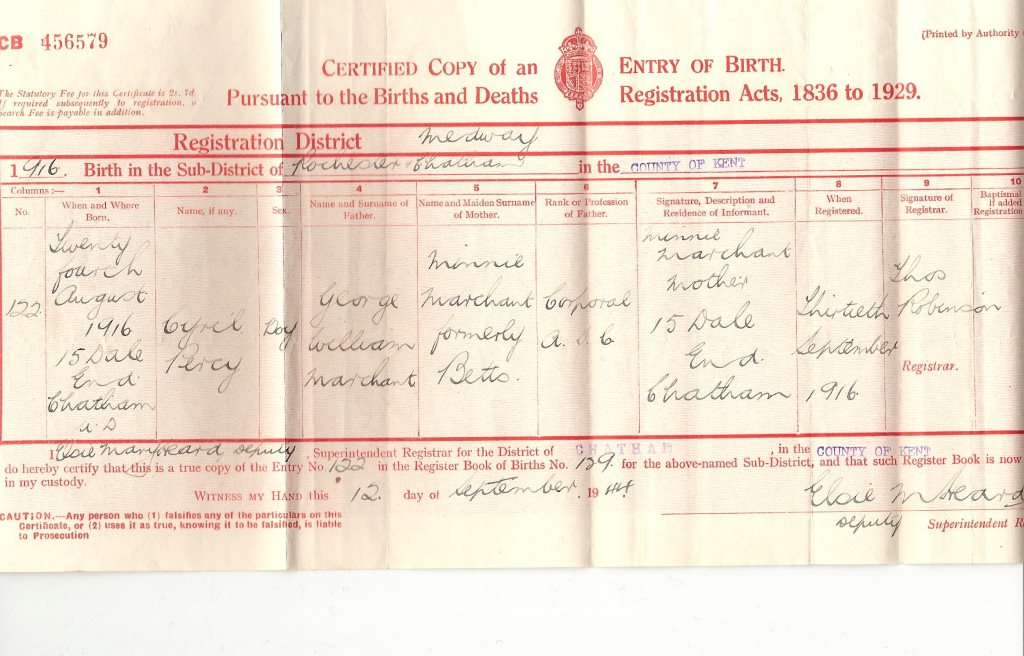 CB 456579
(Printed by Authority
CERTIFIED COPY of an ENTRY OF BIRTH.
The Statutory Fee for this Certificate is 2s. 7d.
If required subsequently to registration, a
Search Fee is payable in addition.
Pursuant to the Births and Deaths Registration Acts, 1836 to 1929.
Registration District Medway
1916. Birth in the Sub-District of Rochester & Chatham in the COUNTY OF KENT
Columns :— 1 2 3 4 5 6 7 8 9 10
No. When and Where Born. Name, if any. Sex. Name and Surname of Father. Name and Maiden Surname of Mother. Rank or Profession of Father. Signature, Description and Residence of Informant. When Registered. Signature of Registrar. Baptismal if added Registration
122
Twenty
fourth
August
1916
15 Dale
End
Chatham
u.D
Cyril
Percy
Boy
George
William
Marchant
Minnie
Marchant
formerly
Betts.
Corporal
A. S. C
Minnie
Marchant
Mother
15 Dale
End.
Chatham
Thirtieth
September
1916
Thos
Robinson
Registrar.
I, Elsie Mary Heard deputy, Superintendent Registrar for the District of CHATHAM, in the COUNTY OF KENT
do hereby certify that this is a true copy of the Entry No. 122 in the Register Book of Births No. 129. for the above-named Sub-District, and that such Register Book is now
in my custody.
WITNESS MY HAND this 12. day of September, 1944.
Elsie M Heard
deputy Superintendent R
CAUTION.—Any person who (1) falsifies any of the particulars on this
Certificate, or (2) uses it as true, knowing it to be falsified, is liable
to Prosecution